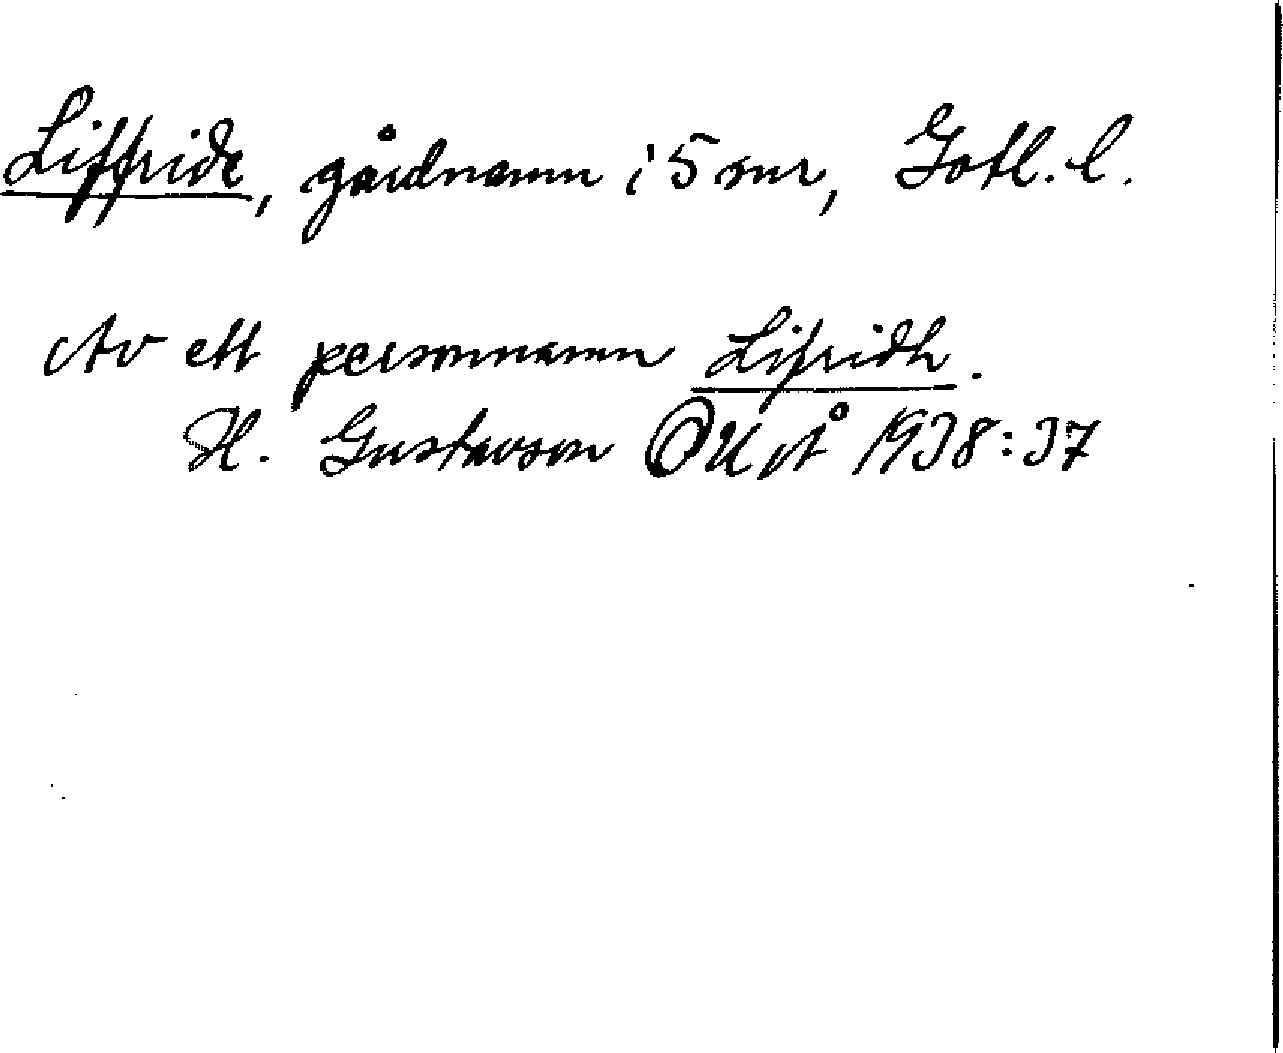 Liffride, gårdnamn i 5 snr, Gotl. l.
Av ett personnamn Lifridh.
H. Gustavson OUÅ 1938:37